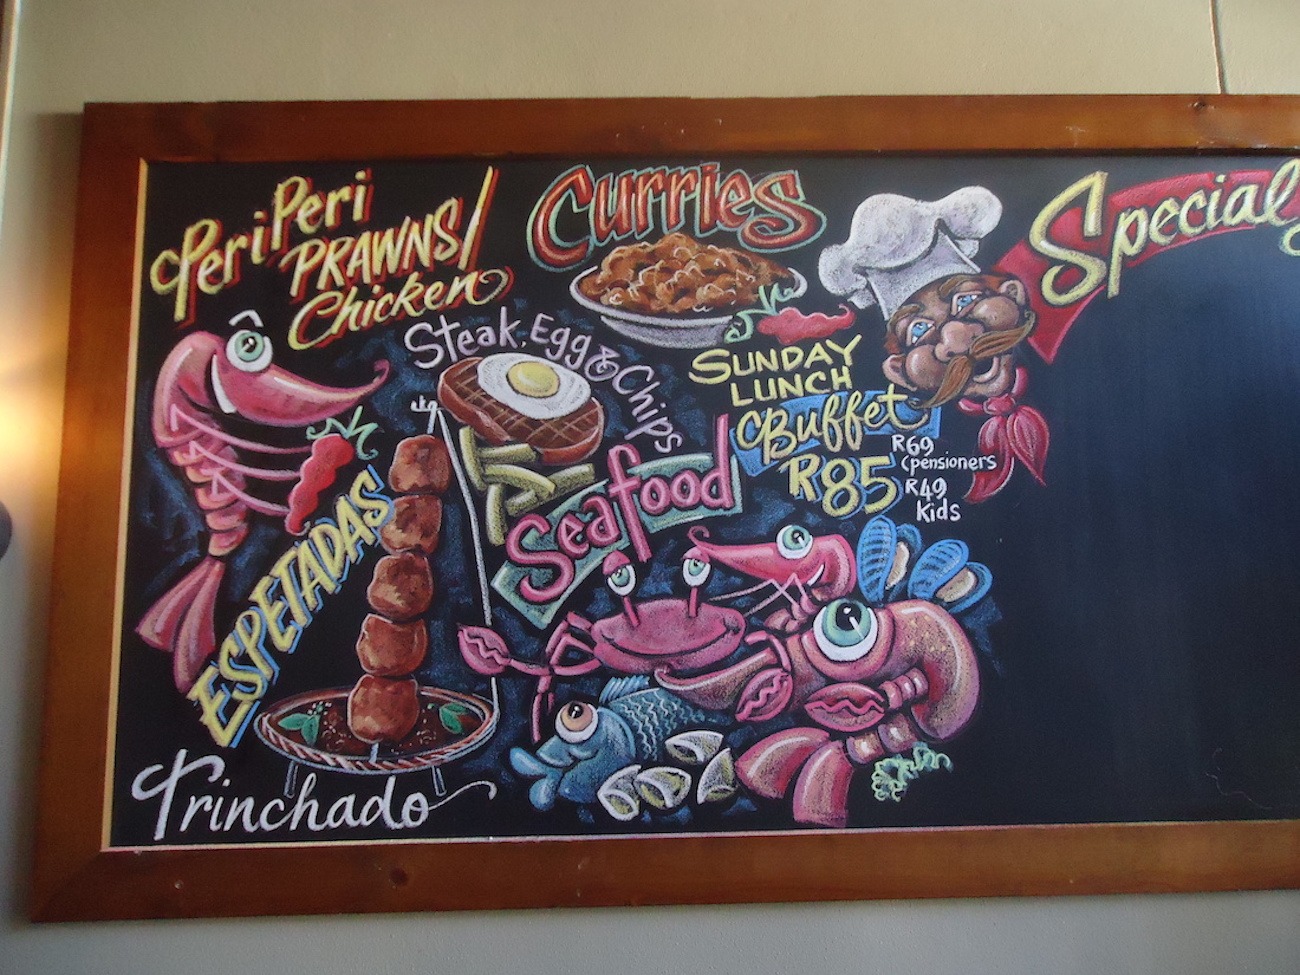 Peri Peri
PRAWNS/
Chicken
Curries
Special
Steak, Egg & Chips
SUNDAY
LUNCH
Buffet
R85
R69
(pensioners
R49
Kids
Seafood
ESPETADAS
Trinchado